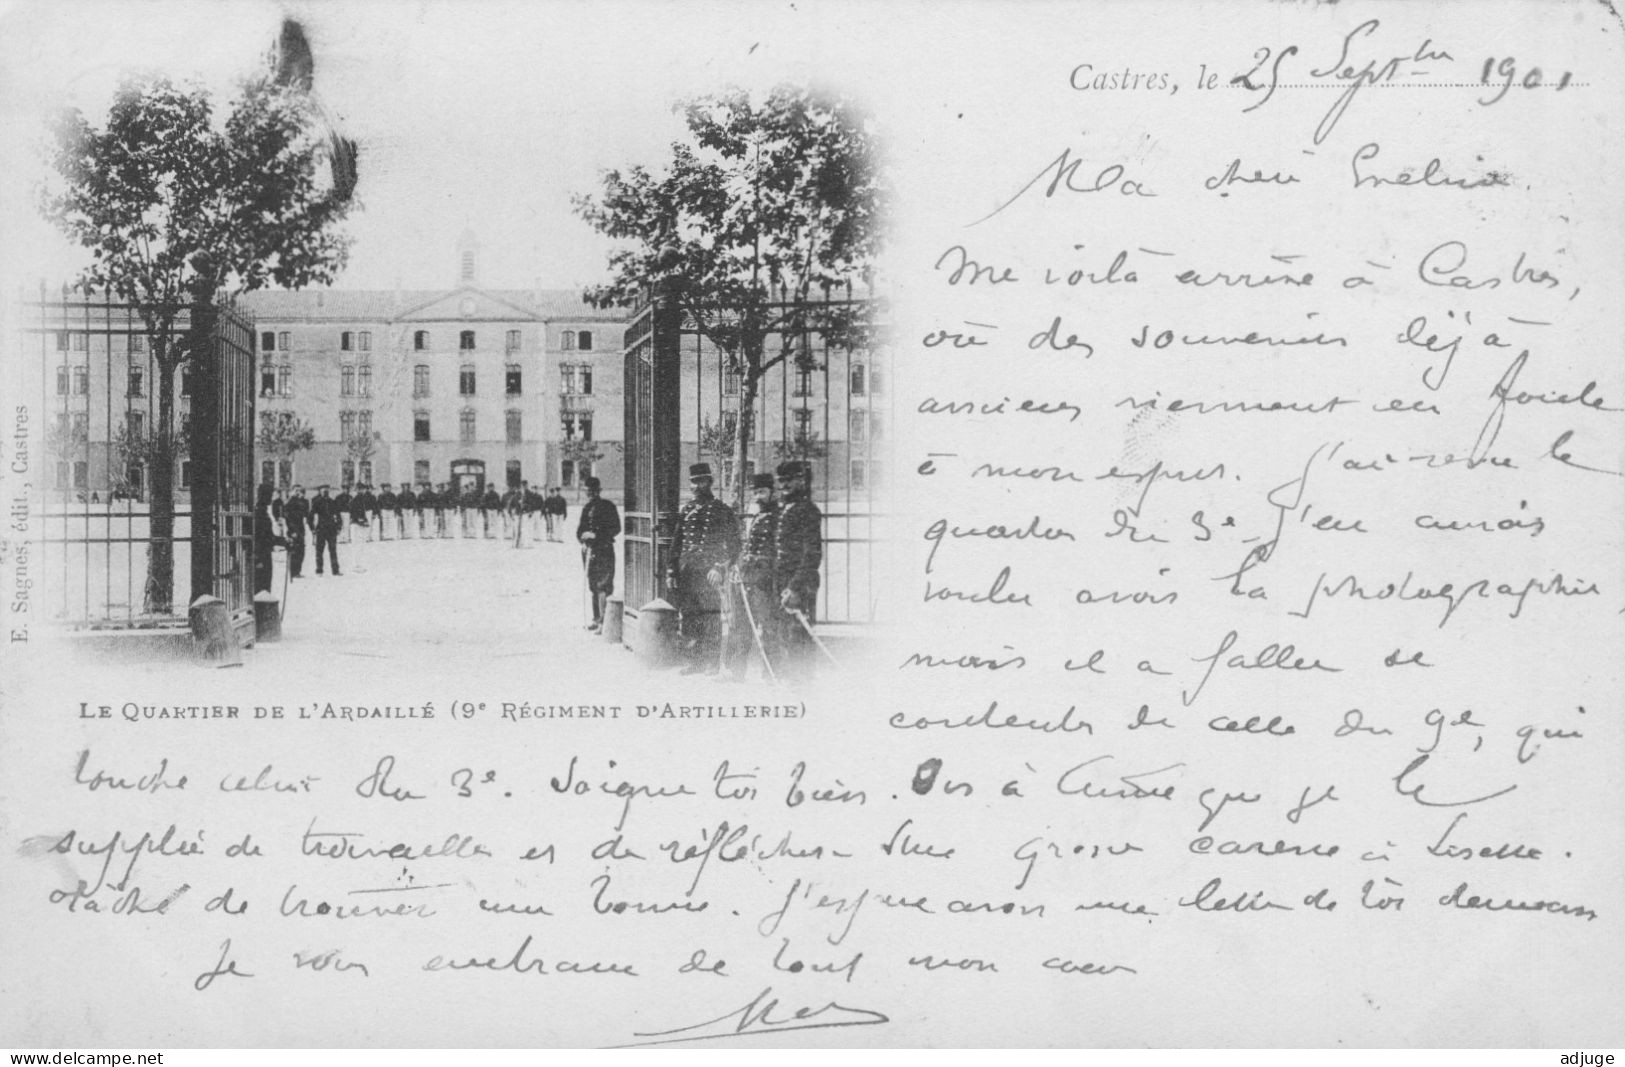 Castres, le 25 Septbre 1901
Ma chère Evelina.
Me voilà arrivé à Castres,
où des souvenirs déjà
anciens viennent en foule
à mon esprit. J'ai revu le
quartier du 3e. J'en aurais
voulu avoir la photographie,
mais il a fallu se
contenter de celle du 9e, qui
touche celui du 3e. Soigne toi bien. Dis à que je le
supplie de travailler et de réfléchir. Une grosse caresse à Lisette.
Tâche de trouver une bonne. J'espère avoir une lettre de toi demain
Je vous embrasse de tout mon cœur
E. Sagnes, édit., Castres
LE QUARTIER DE L'ARDAILLÉ (9e RÉGIMENT D'ARTILLERIE)
www.delcampe.net
adjuge